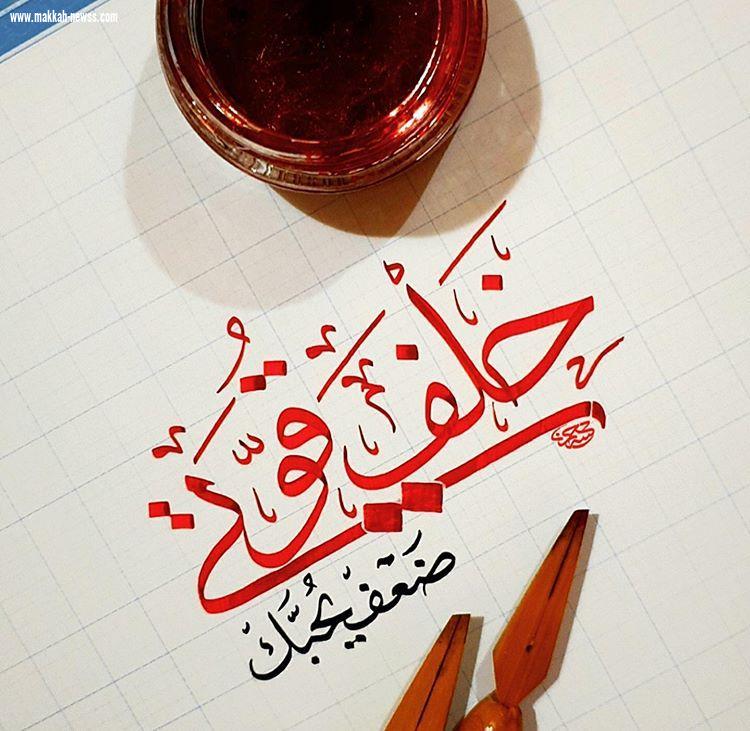 www.makkah-newss.com
خَلْفَ قُوَّتي
ضَعف يُحبَّك